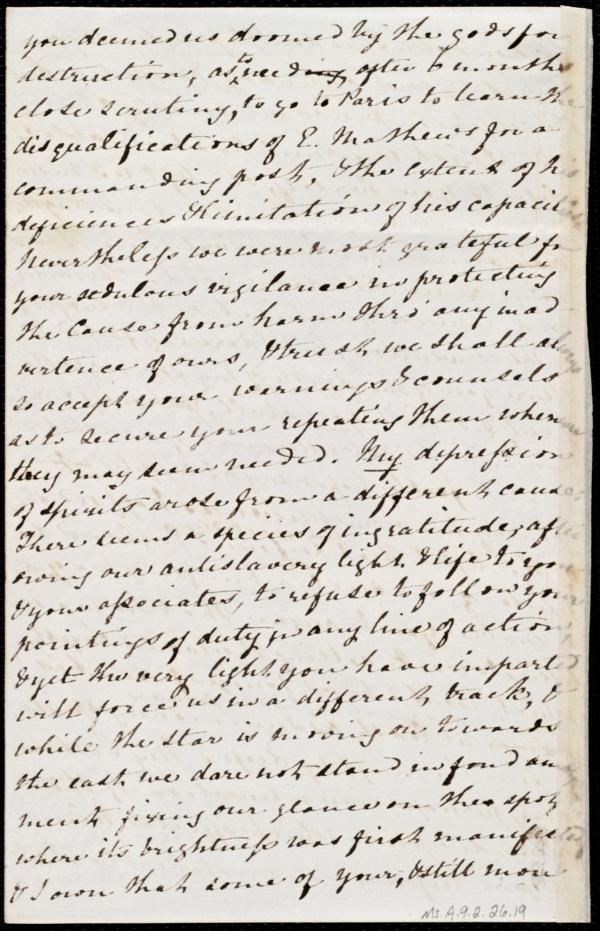 you deemed us doomed by the gods for
destruction, as to need, after 6 months
close scrutiny, to go to Paris to learn the
disqualifications of E. Mathews for a
commanding post, & the extent of his
deficiences & limitation of his capacities
Nevertheless we were most grateful for
your sedulous vigilance in protecting
the Cause from harm thro' any inad
vertence of ours, & trust we shall always
so accept your warnings & counsels
as to secure your repeating them whenever
they may seem needed. My depression
of spirits arose from a different cause.
There seems a species of ingratitude, after
owing our antislavery light & life to you
& your associates, to refuse to follow your
pointings of duty in any line of action,
& yet the very light you have imparted
will force us in a different track, &
while the star is moving on towards
the east we dare not stand in fond amaze
ment fixing our glance on the spot
where its brightness was first manifested,
& I own that some of your, & still more
Ms.A.9.2.26.19